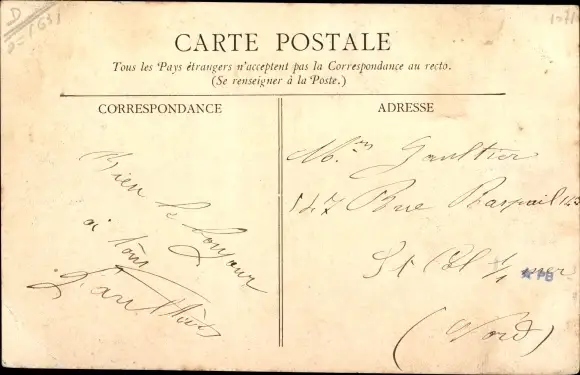 D
CARTE POSTALE
Tous les Pays étrangers n'acceptent pas la Correspondance au recto.
(Se renseigner à la Poste.)
CORRESPONDANCE
Bien le Bonjour
a tous
Gaulthier
ADRESSE
Gaultier
147 Rue Raspail 143
St Pol s/ mer
PB
(Nord)